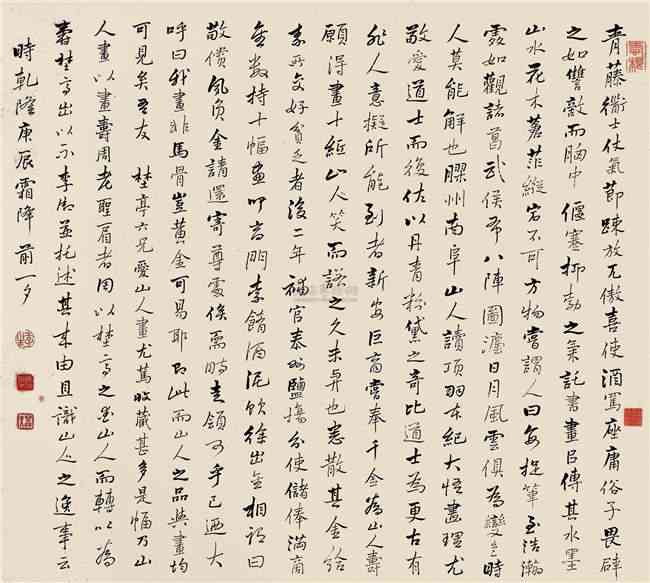 青藤衢士仗氣節疎放兀傲喜使酒罵座庸俗子畏辟
之如讐敵而胸中偃蹇抑勃之氣託書畫以傳其水墨
山水花木蒼莽縱宕不可方物嘗謂人曰每捉筆至浩瀚
處如觀諸葛武侯布八陣圖瀍日月風雲俱為變色時
人莫能解也膠州南阜山人讀項羽本紀大悟畫理尤
敬愛道士而後佐以丹青粉黛之奇比道士為更古有
非人意擬所能到者新安巨商嘗奉千金為山人壽
願得畫十紙山人笑而諾之久未與也悉散其金給
素所交好貧乏者後二年稱官泰州鹽場分使儲俸滿商
金數持十幅畫叩商門索餚酒泥飲徐出金相謂曰
敬償夙負金請還寄尊處俟需時走領可乎已迺大
呼曰我畫非馬骨豈黃金可易耶即此而山人之品與畫均
可見矣吾友 埜亭六兄愛山人畫尤篤收藏甚多是幅乃山
人畫以壽周老聖眉者用以埜亭之出山人而轉以為
壽埜亭出以示李 並托述其來由且識山人之逸事云
時乾隆庚辰霜降前一夕